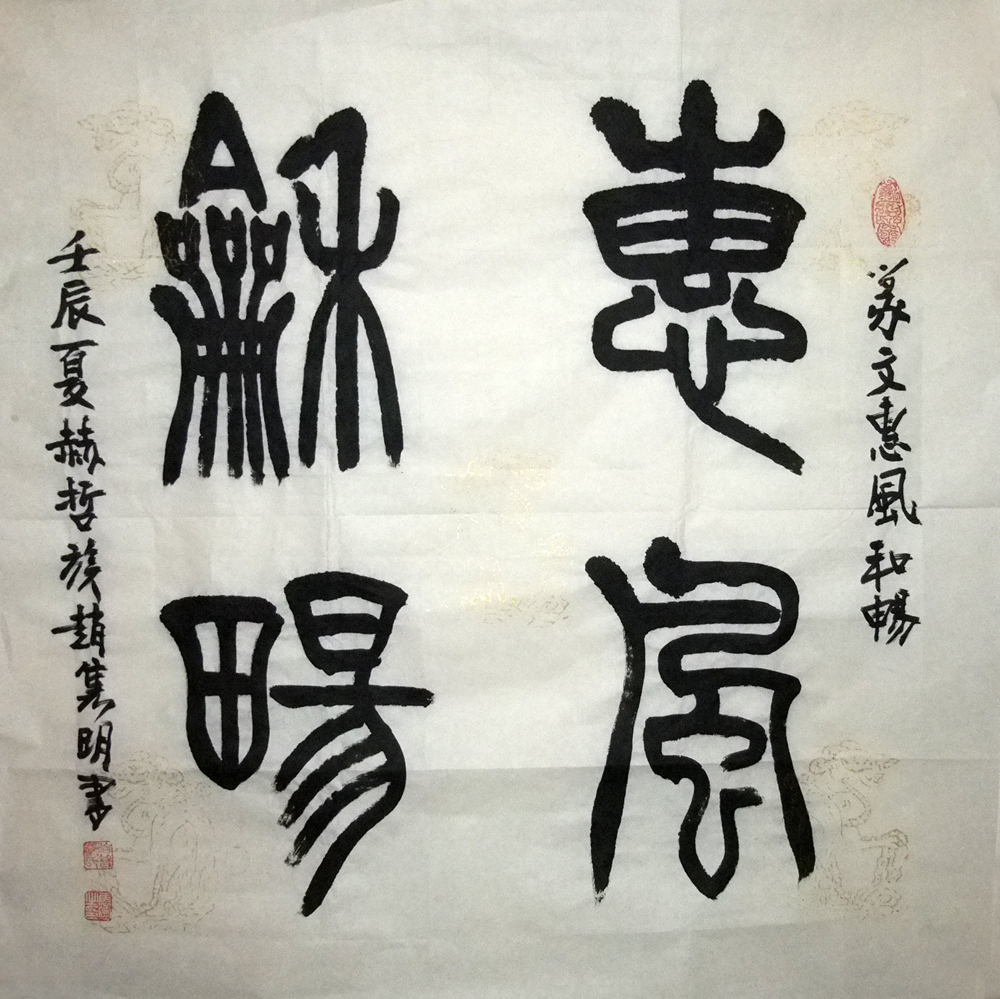 篆文惠風和暢
惠風
龢畼
壬辰夏赫哲族趙集明書